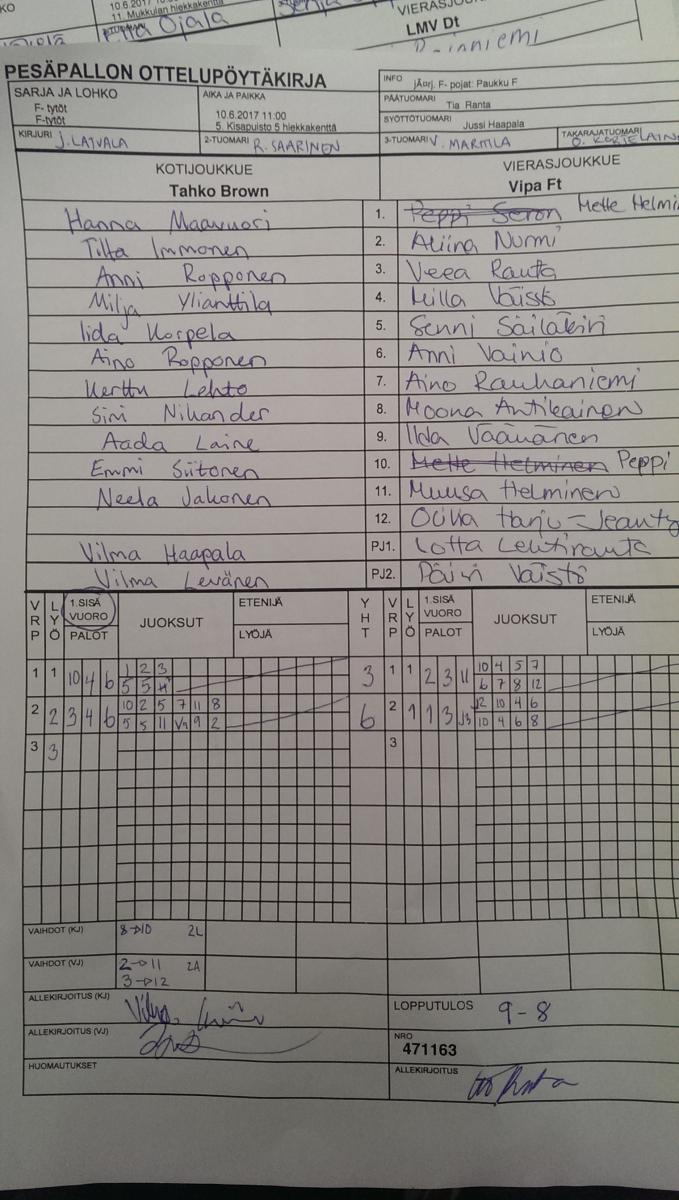 10.6.2017
11. Mukkulan hiekkakenttä
Ojala
LMV Dt
PESÄPALLON OTTELUPÖYTÄKIRJA
SARJA JA LOHKO
F- tytöt
F-tytöt
AIKA JA PAIKKA
10.6.2017 11:00
5. Kisapuisto 5 hiekkakenttä
INFO jÄorj. F- pojat: Paukku F
PÄÄTUOMARI Tia Ranta
SYÖTTÖTUOMARI Jussi Haapala
KIRJURI J. LATVALA
2-TUOMARI R. SAARINEN
3-TUOMARI V. MARTTILA
TAKARAJATUOMARI
KOTIJOUKKUE
Tahko Brown
VIERASJOUKKUE
Vipa Ft
Hanna Maavuori 1. Peppi Seron Mette Helmi
Tilta Immonen 2. Aliina Nurmi
Anni Ropponen 3. Veea Rauta
Milja Ylianttila 4. Milla Väistö
Iida Korpela 5. Senni Säiläkivi
Aino Ropponen 6. Anni Vainio
Kerttu Lehto 7. Aino Rauhaniemi
Sini Nihander 8. Moona Antikainen
Aada Laine 9. Ilda Väänänen
Emmi Siitonen 10. Mette Helminen Peppi
Neela Jakonen 11. Muusa Helminen
12. Harju-Jeanty
Vilma Haapala PJ1. Lotta Lehtiranta
Vilma Levänen PJ2. Päivi Väistö
VRP LYÖ 1.SISÄ VUORO PALOT JUOKSUT ETENIJÄ LYÖJÄ YHT VRP LYÖ 1.SISÄ VUORO PALOT JUOKSUT ETENIJÄ LYÖJÄ
1 1 10 4 6 1 2 3 3 1 1 2 3 11 10 4 5 7
5 5 4 6 7 8 12
2 2 3 4 6 10 2 5 7 11 8 6 2 1 1 3 J3 J2 10 4 6
5 5 11 V2 9 2 10 4 6 8
3 3 3
VAIHDOT (KJ) 8→10 2L
VAIHDOT (VJ) 2→11 2A
3→12
ALLEKIRJOITUS (KJ)
LOPPUTULOS 9-8
ALLEKIRJOITUS (VJ)
NRO
471163
HUOMAUTUKSET
ALLEKIRJOITUS